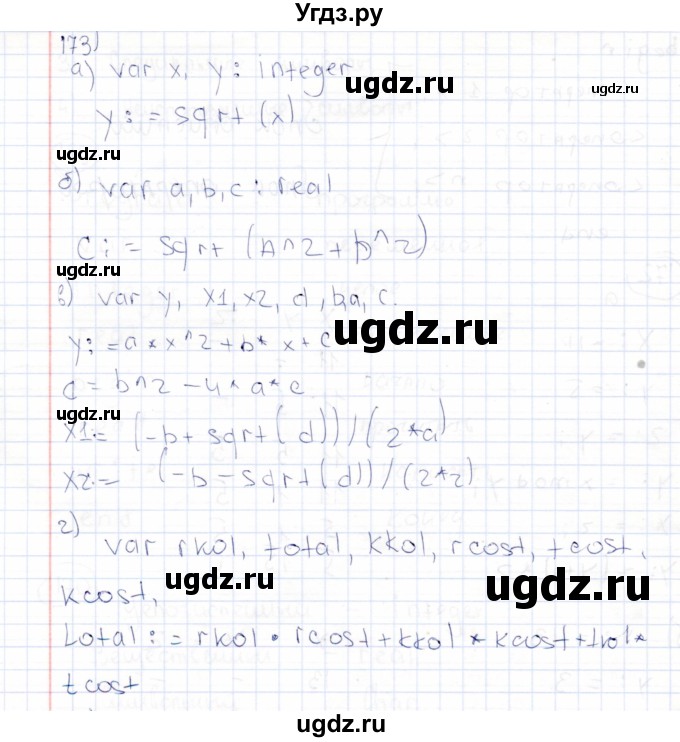 Угдз.ру
173)
а) var x, y: integer
ugdz.ru
ugdz.ru
y: = sqrt (x).
ugdz.ru
б) var a, b, c : real
C: = sqrt (A^2 + b^2)
ugdz.ru
в) var y, x1, x2, d, b, a, c.
ugdz.ru
y: = a * x^2 + b* x + c
d = b^2 - 4 * a * c
ugdz.ru
x1:= (-b + sqrt (d)) / (2*a)
x2:= (-b - sqrt (d)) / (2*2)
г)
var rkol, total, kkol, rcost, tcost,
ugdz.ru
ugdz.ru
kcost,
total : = rkol • rcost + kkol * kcost + tkol *
tcost
ugdz.ru
ugdz.ru